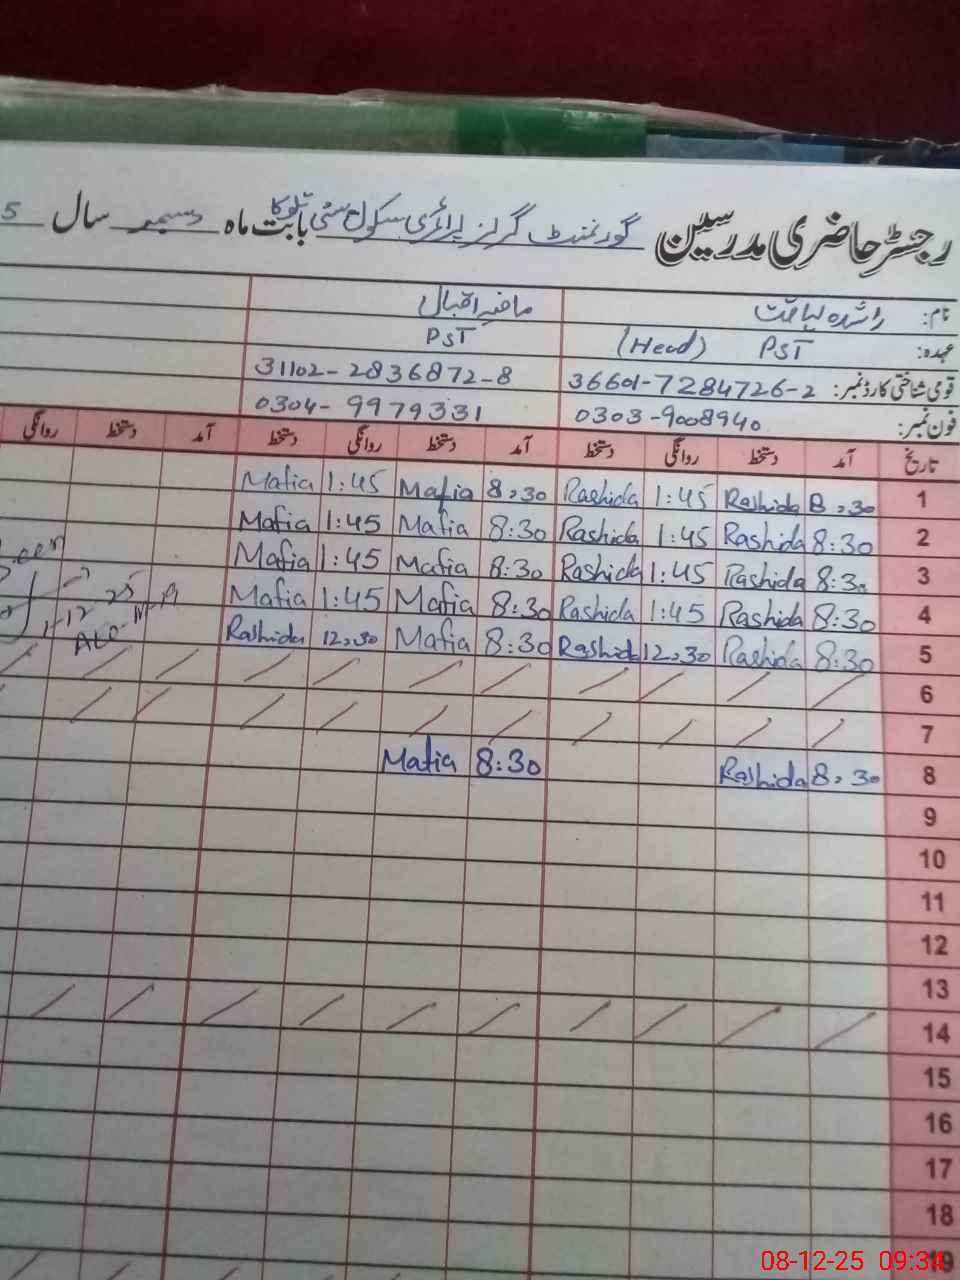 رجسٹر حاضری مدرسین گورنمنٹ گرلز پرائمری سکول سٹی بابت ماہ دسمبر سال 5
نام: راشدہ لیاقت مافیہ اقبال
عہدہ: PST (Head) PST
قومی شناختی کارڈ نمبر: 36601-7284726-2 31102-2836872-8
فون نمبر: 0303-9008940 0304-9979331
تاریخ آمد دستخط روانگی دستخط آمد دستخط روانگی دستخط آمد دستخط روانگی
1 8:30 Rashida 1:45 Rashida 8:30 Mafia 1:45 Mafia
2 8:30 Rashida 1:45 Rashida 8:30 Mafia 1:45 Mafia
3 8:30 Rashida 1:45 Rashida 8:30 Mafia 1:45 Mafia
4 8:30 Rashida 1:45 Rashida 8:30 Mafia 1:45 Mafia
5 8:30 Rashida 12:30 Rashida 8:30 Mafia 12:30 Rashida
6
7
8 8:30 Rashida 8:30 Mafia
9
10
11
12
13
14
15
16
17
18
19
08-12-25 09:34